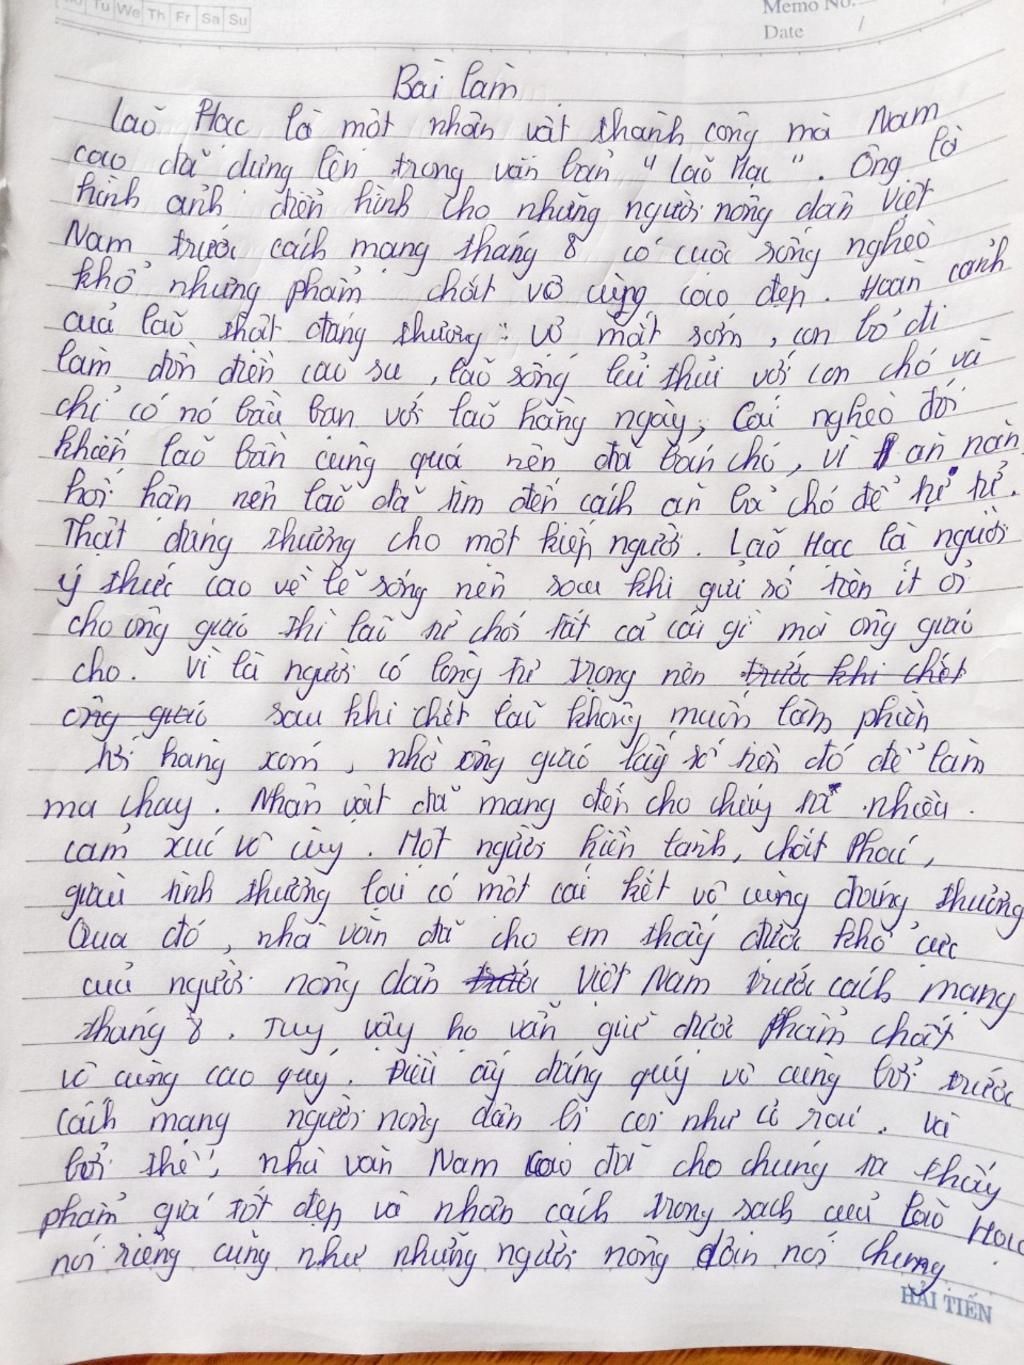 Tu We Th Fr Sa Su
Memo No.
Date /
Bài làm
Lão Hạc là một nhân vật thành công mà Nam
cao đã dựng lên trong văn bản "Lão Hạc". Ông là
hình ảnh điển hình cho những người nông dân Việt
Nam trước cách mạng tháng 8 có cuộc sống nghèo
khổ nhưng phẩm chất vô cùng cao đẹp. Hoàn cảnh
của lão thật đáng thương: vợ mất sớm, con bỏ đi
làm đồn điền cao su, lão sống lủi thủi với con chó và
chỉ có nó bầu bạn với lão hằng ngày, Cái nghèo đói
khiến lão bần cùng quá nên đã bán chó, vì ăn năn
hối hận nên lão đã tìm đến cách ăn bả chó để tự tử.
Thật đáng thương cho một kiếp người. Lão Hạc là người
ý thức cao về lẽ sống nên sau khi gửi số tiền ít ỏi
cho ông giáo thì lão từ chối tất cả cái gì mà ông giáo
cho. Vì là người có lòng tự trọng nên trước khi chết
ông giáo sau khi chết lão không muốn làm phiền
tới hàng xóm, nhờ ông giáo lấy số tiền đó để làm
ma chay. Nhân vật đã mang đến cho chúng ta nhiều
cảm xúc vô cùng. Một người hiền lành, chất phác,
giàu tình thương lại có một cái kết vô cùng đáng thương
Qua đó, nhà văn đã cho em thấy được khổ cực
của người nông dân trước Việt Nam trước cách mạng
tháng 8. Tuy vậy họ vẫn giữ được phẩm chất
vô cùng cao quý. Điều ấy đáng quý vô cùng bởi trước
cách mạng người nông dân bị coi như cỏ rác. và
bởi thế, nhà văn Nam cao đã cho chúng ta thấy
phẩm giá tốt đẹp và nhân cách trong sạch của lão Hạc
nói riêng cũng như những người nông dân nói chung.
HẢI TIẾN